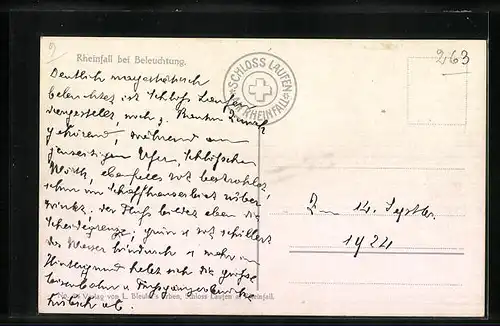 2
263
Rheinfall bei Beleuchtung.
SCHLOSS LAUFEN
RHEINFALL
Deutlich magisch
beleuchtet ist Schloß Laufen
dargestellt, noch z. Kanton Zürich
gehörend, während am
jenseitigen Ufer, Schlößchen
Wörth, ebenfalls rot bestrahlt,
schon ins Schaffhauserbiet
der Fluß bildet eben die
Scheidegrenze; grün & rot schillert
das Wasser hindurch & mehr im
Hintergrund hebt sich die große
Eisenbahn u. Fußgängerbrücke
hübsch ab.
14. Septbr.
1924
No. Verlag von L. Bleuler's Erben, Schloss Laufen a. Rheinfall.